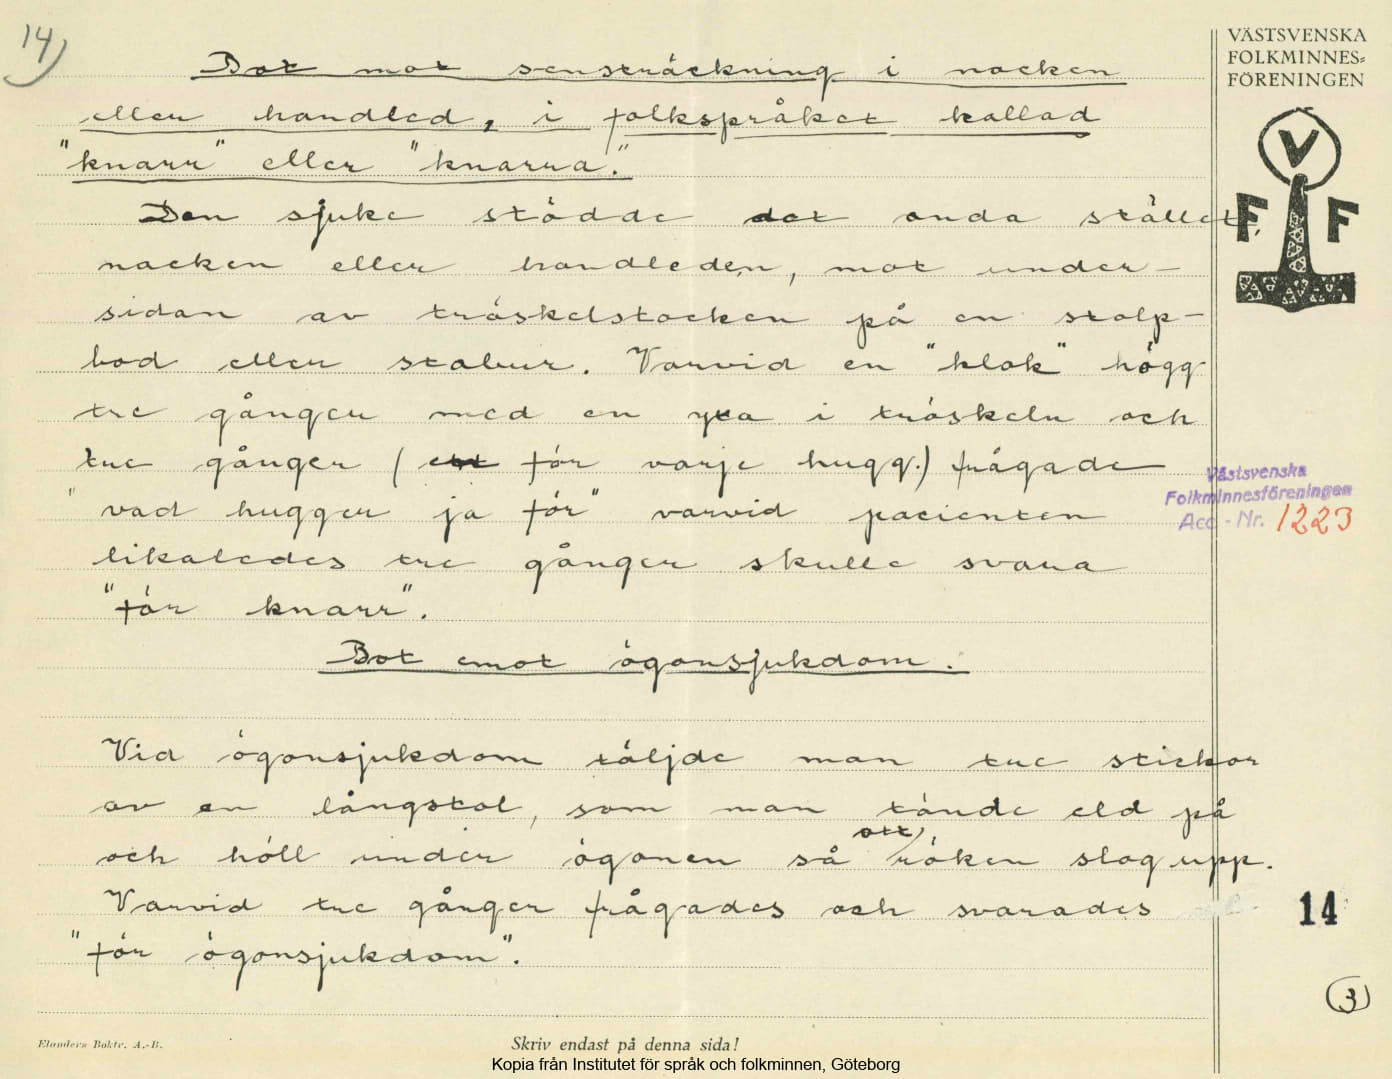 14)
VÄSTSVENSKA
FOLKMINNES-
FÖRENINGEN
V
F F
Bot mot sensträckning i nacken
eller handled, i folkspråket kallad
"knarr" eller "knarra."
Den sjuke stödde det onda stället,
nacken eller handleden, mot under-
sidan av tröskelstocken på en stolp-
bod eller stabur. Varvid en "klok" högg
tre gånger med en yxa i tröskeln och
tre gånger (ett för varje hugg.) frågade
"vad hugger ja för" varvid pacienten
likaledes tre gånger skulle svara
"för knarr".
Västsvenska
Folkminnesföreningen
Acc - Nr. 1223
Bot emot ögonsjukdom.
Vid ögonsjukdom täljde man tre stickor
av en långstol, som man tände eld på
och höll under ögonen så att röken slog upp.
Varvid tre gånger frågades och svarades
"för ögonsjukdom".
14
3
Elanders Boktr. A.-B.
Skriv endast på denna sida!
Kopia från Institutet för språk och folkminnen, Göteborg